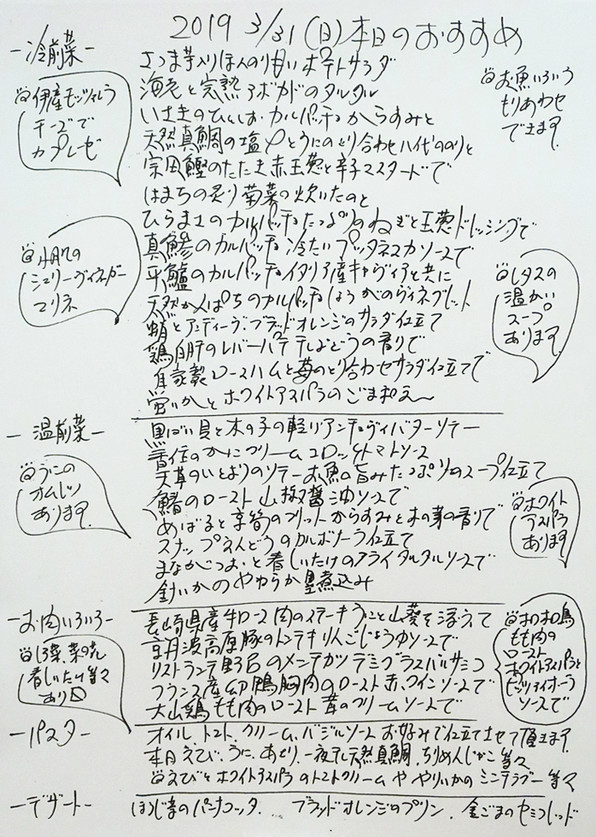 2019 3/31(日)本日のおすすめ
-冷前菜-
さつま芋入りほんのり甘いポテトサラダ
海老と完熟アボカドのタルタル
いさきのカルパッチョからすみと
天然真鯛の塩〆とうにのとり合わせ八代ののりと
宗田鰹のたたき赤玉葱と辛子マスタードで
はまちの炙り菊菜の炊いたのと
ひらまさのカルパッチョたっぷりのねぎと玉葱ドレッシングで
真鯵のカルパッチョ冷たいプッタネスカソースで
平鱸のカルパッチョイタリア産キャヴィアと共に
天然かんぱちのカルパッチョしょうがのヴィネグレット
蛸とアンディーブ・ブラッドオレンジのサラダ仕立て
鶏白肝のレバーパテ干しぶどうの香りで
自家製ロースハムと苺のとり合わせサラダ仕立てで
蛍いかとホワイトアスパラのごま和え〜
伊産モッツァレラ
チーズで
カプレーゼ
お魚いろいろ
もりあわせ
できます。
小肌の
シェリーヴィネガー
マリネ
レタスの
温かい
スープ
あります。
-温前菜-
黒ばい貝と木の子の軽いアンチョヴィバターソテー
香住のかにクリームコロッケトマトソース
天草のいとよりのソテーお魚の旨みたっぷりのスープ仕立て
鰆のロースト山椒醤油ソースで
めばると京筍のフリットからすみと木の芽の香りで
スナップえんどうのカルボナーラ仕立て
まながつおと春しいたけのフライタルタルソースで
針いかのやわらか墨煮込み
うにの
オムレツ
あります。
ホワイト
アスパラ
あります。
-お肉いろいろ-
長崎県産牛ロース肉のステーキうにと山葵を添えて
京丹波高原豚のトンテキりんごじょうゆソースで
リストランテ野呂のメンチカツデミグラスバルサミコ
フランス産 鴨胸肉のロースト赤ワインソースで
大山鶏もも肉のロースト茸のクリームソースで
しろ菜、菜の花
春しいたけ等々
あり〼
ほろほろ鳥
もも肉の
ロースト
ホワイトアスパラと
ソースで
-パスタ-
オイル、トマト、クリーム、バジルソースお好みで仕立てさせて頂きます。
本日えび、うに、あさり、一夜干し天然真鯛、ちりめんじゃこ等々
えびとホワイトアスパラのトマトクリームややりいかのミニラグー等々
-デザート-
ほうじ茶のパンナコッタ... ブラッドオレンジのプリン、金ごまのセミフレッド